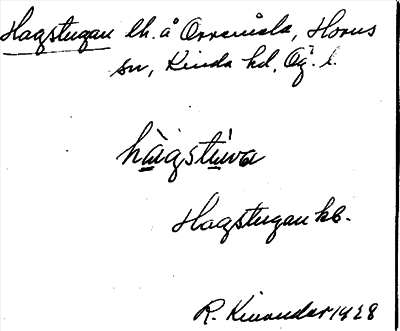 Hagstugan lh. å Orrenäsla, Horns
sn, Kinda hd, Ög. l.
hàgstúwa
Hagstugan kb.
R. Kinander 1928